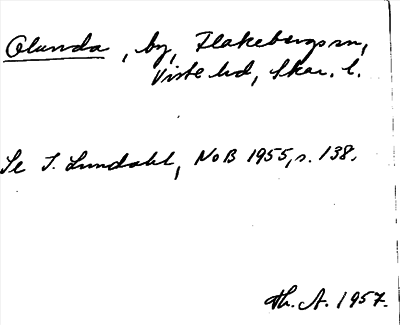 Olunda, by, Flakebergs sn,
Viste hd, Skar. l.
Se I. Lundahl, NoB 1955, s. 138.
Th. A. 1957.